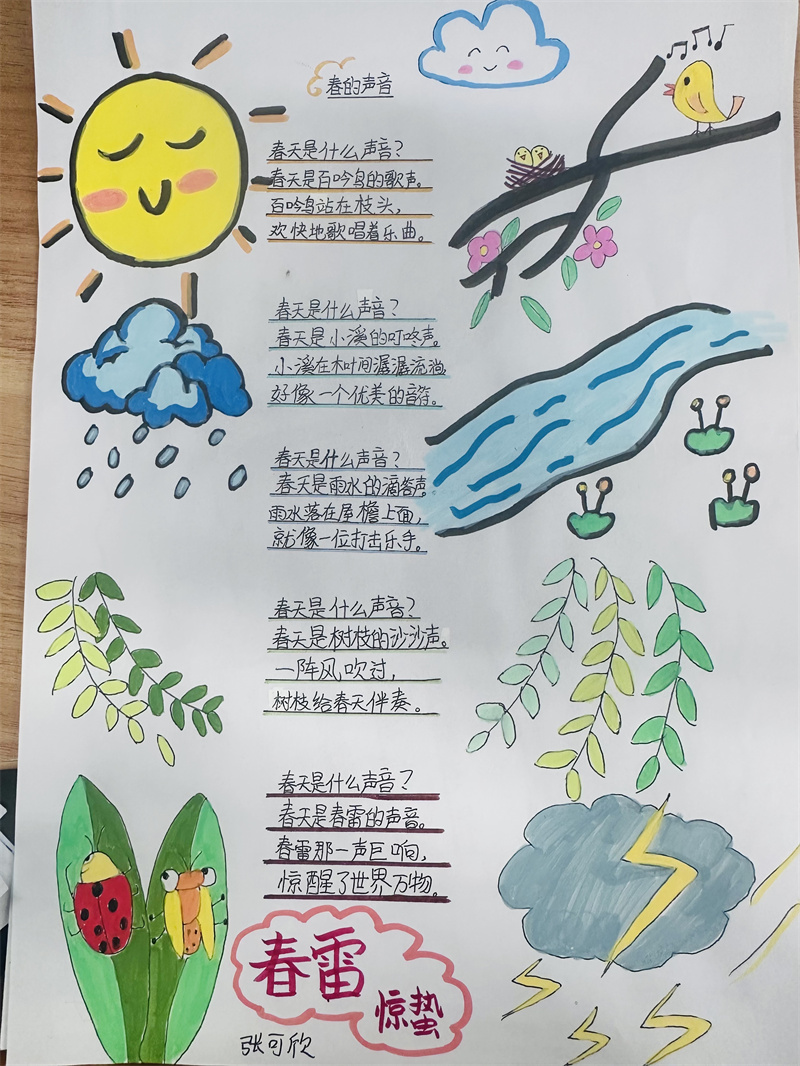 春的声音
春天是什么声音？
春天是百吟鸟的歌声。
百吟鸟站在枝头，
欢快地歌唱着乐曲。
春天是什么声音？
春天是小溪的叮咚声。
小溪在林叶间潺潺流淌
好像一个优美的音符。
春天是什么声音？
春天是雨水的滴答声。
雨水落在屋檐上面，
就像一位打击乐手。
春天是什么声音？
春天是树枝的沙沙声。
一阵风吹过，
树枝给春天伴奏。
春天是什么声音？
春天是春雷的声音。
春雷那一声巨响，
惊醒了世界万物。
春雷
惊蛰
张可欣